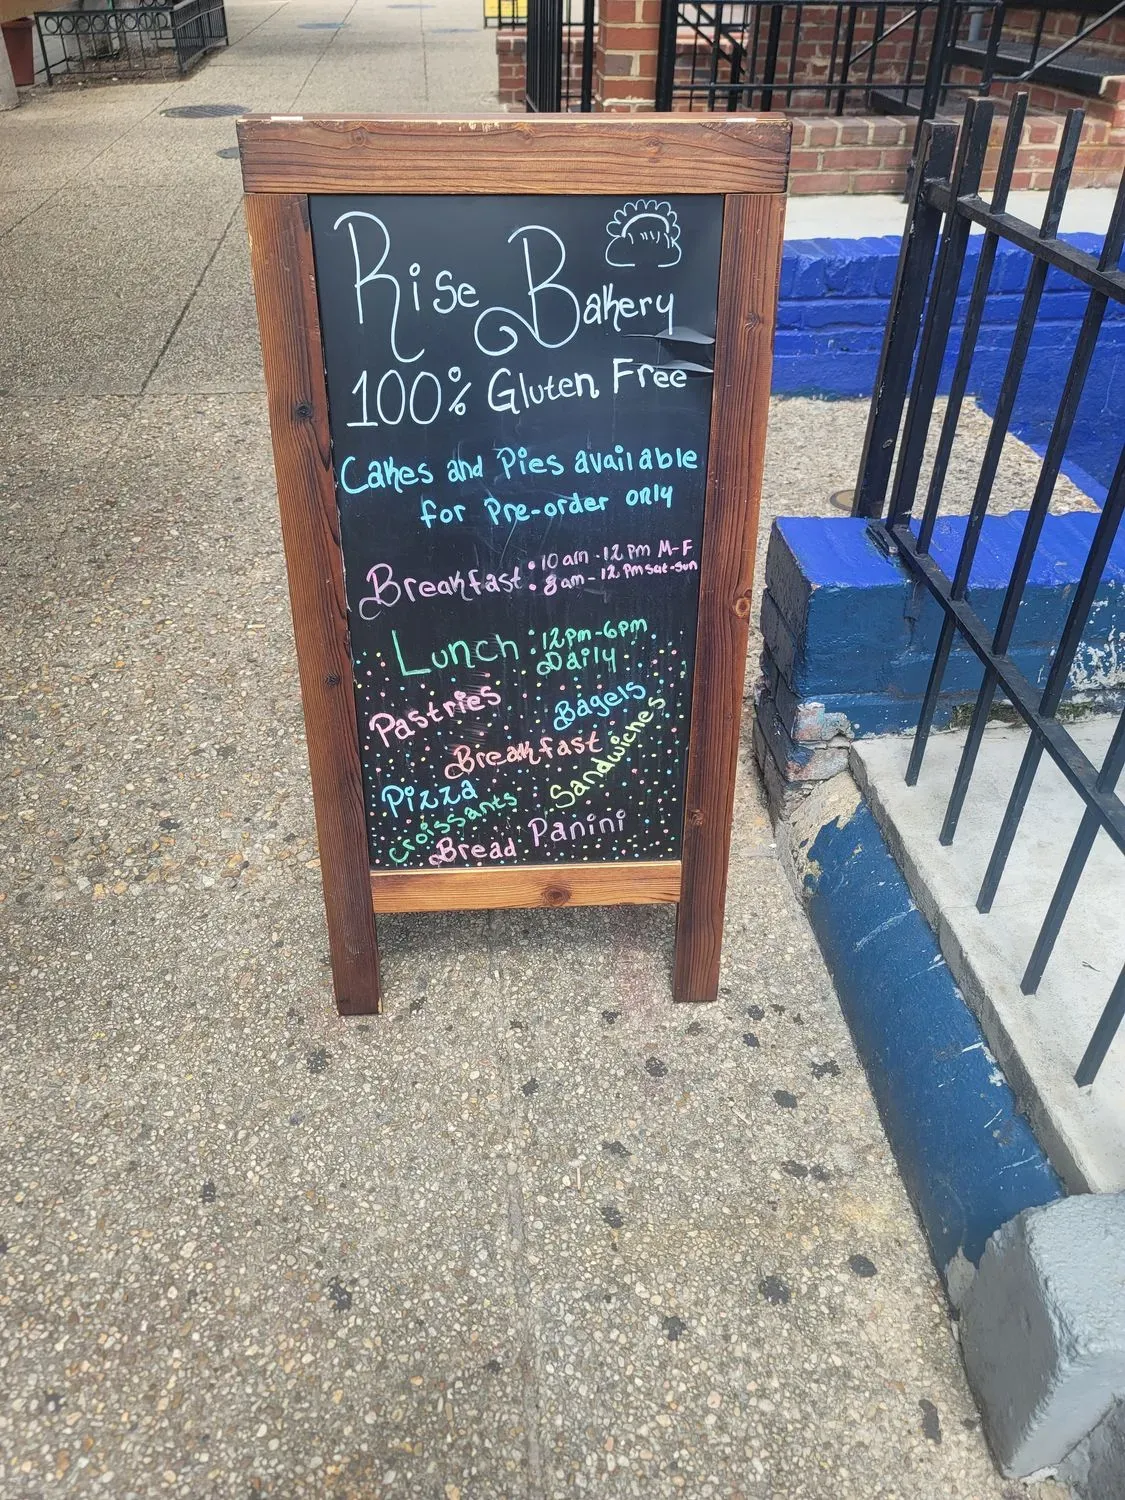 Rise Bakery
100% Gluten Free
Cakes and Pies available
for Pre-order only
Breakfast: 10 am - 12 pm M-F
8 am - 12 pm sat-sun
Lunch: 12pm-6pm
Daily
Pastries
Bagels
Breakfast
Sandwiches
Pizza
Croissants
Bread Panini